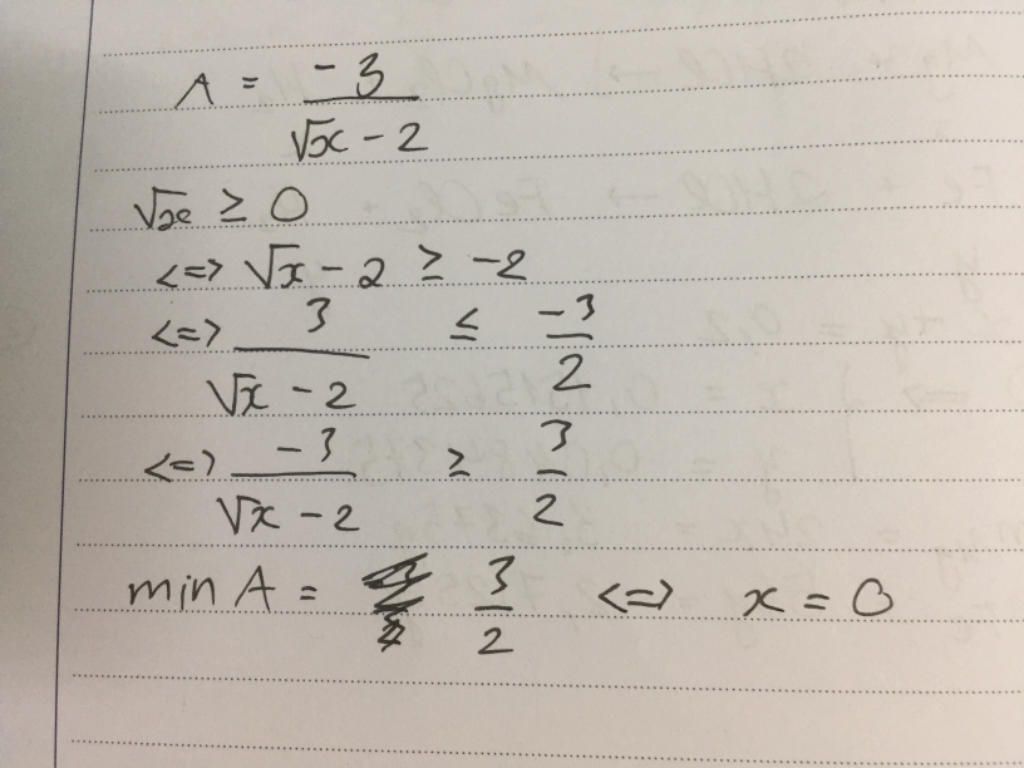 A = -3 / (√x - 2)
√x ≥ 0
<=> √x - 2 ≥ -2
<=> 3 / (√x - 2) ≤ -3 / 2
<=> -3 / (√x - 2) ≥ 3 / 2
min A = 3 / 2 <=> x = 0